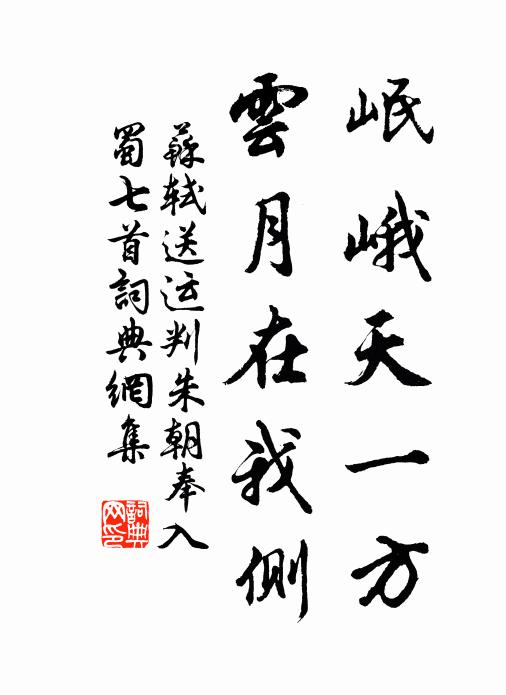 岷峨天一方
雲月在我側
蘇軾送运判朱朝奉入
蜀七首詞典網集
詞典
网印